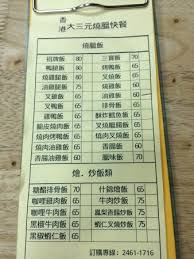 香港大三元燒臘快餐
燒臘飯
招牌飯 80 三寶飯 70
鴨腿飯 80 燒鴨飯 65
燒雞腿飯 75 燒雞飯 65
油雞腿飯 75 油雞飯 65
叉燒飯 65 燒肉飯 65
叉鴨飯 65 排骨飯 65
叉雞飯 65 酥炸鱈魚飯 65
脆皮燒肉飯 65 燒肉叉燒飯 65
燒肉烤鴨飯 65 燒肉燒雞飯 65
燒肉油雞飯 65 香腸叉燒飯 65
香腸油雞飯 65 香腸三寶飯 70
燴．炒飯類
糖醋排骨飯 65 什錦燴飯 65
咖哩雞肉飯 65 牛肉燴飯 65
咖哩牛肉飯 65 鳳梨香腸炒飯 65
黑椒牛肉飯 65 蝦仁叉燒炒飯 65
黑椒蝦仁飯 65
訂購專線：2461-1716